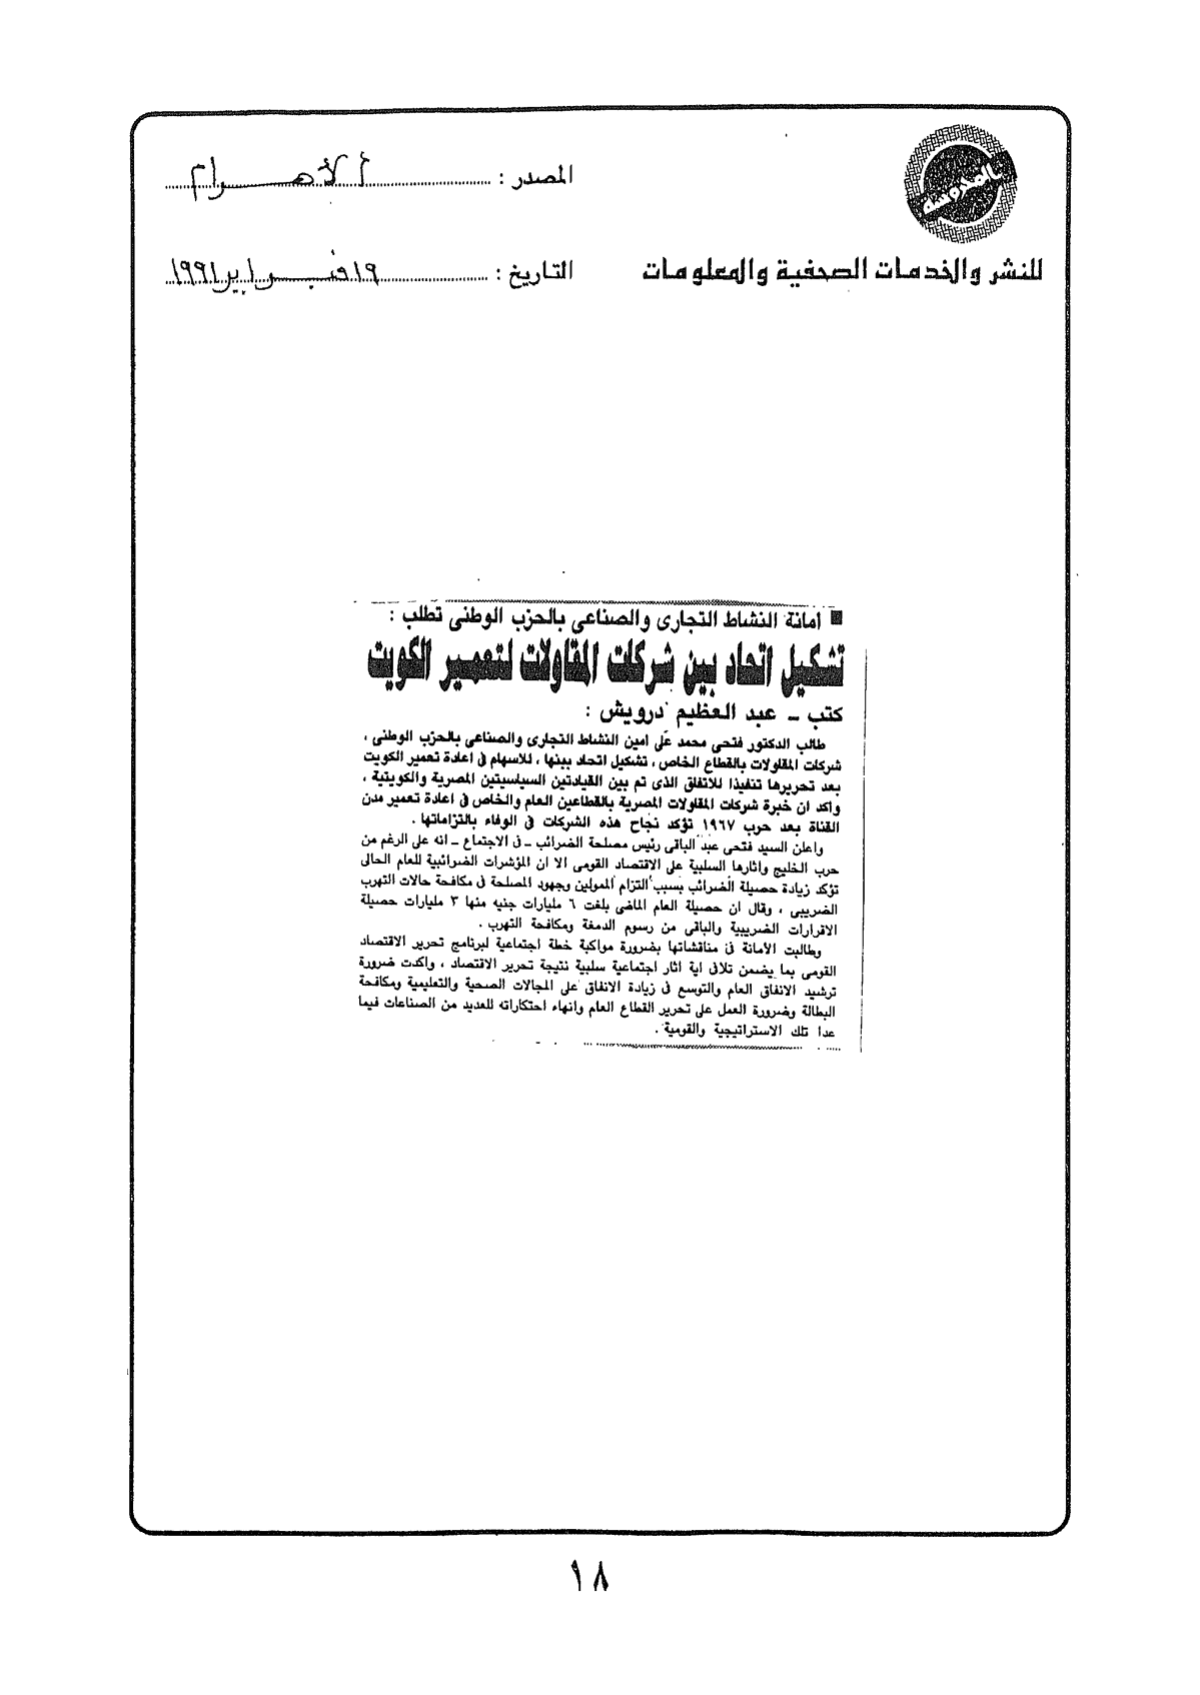 المصدر : الأهرام
للنشر والخدمات الصحفية والمعلومات
التاريخ : ١٩ فبراير ١٩٩١
■ امانة النشاط التجارى والصناعى بالحزب الوطنى تطلب :
تشكيل اتحاد بين شركات المقاولات لتعمير الكويت
كتب ــ عبد العظيم درويش :
طالب الدكتور فتحى محمد على أمين النشاط التجارى والصناعى بالحزب الوطنى ،
شركات المقاولات بالقطاع الخاص ، تشكيل اتحاد بينها ، للاسهام فى اعادة تعمير الكويت
بعد تحريرها تنفيذا للاتفاق الذى تم بين القيادتين السياسيتين المصرية والكويتية ،
واكد ان خبرة شركات المقاولات المصرية بالقطاعين العام والخاص فى اعادة تعمير مدن
القناة بعد حرب ١٩٦٧ تؤكد نجاح هذه الشركات فى الوفاء بالتزاماتها .
واعلن السيد فتحى عبد الباقى رئيس مصلحة الضرائب ــ فى الاجتماع ــ انه على الرغم من
حرب الخليج واثارها السلبية على الاقتصاد القومى الا ان المؤشرات الضرائبية للعام الحالى
تؤكد زيادة حصيلة الضرائب بسبب التزام الممولين وجهود المصلحة فى مكافحة حالات التهرب
الضريبى ، وقال ان حصيلة العام الماضى بلغت ٦ مليارات جنيه منها ٣ مليارات حصيلة
الاقرارات الضريبية والباقى من رسوم الدمغة ومكافحة التهرب .
وطالبت الأمانة فى مناقشاتها بضرورة مواكبة خطة اجتماعية لبرنامج تحرير الاقتصاد
القومى بما يضمن تلافى اية اثار اجتماعية سلبية نتيجة تحرير الاقتصاد ، واكدت ضرورة
ترشيد الانفاق العام والتوسع فى زيادة الانفاق على المجالات الصحية والتعليمية ومكافحة
البطالة وضرورة العمل على تحرير القطاع العام وانهاء احتكاراته للعديد من الصناعات فيما
عدا تلك الاستراتيجية والقومية .
١٨